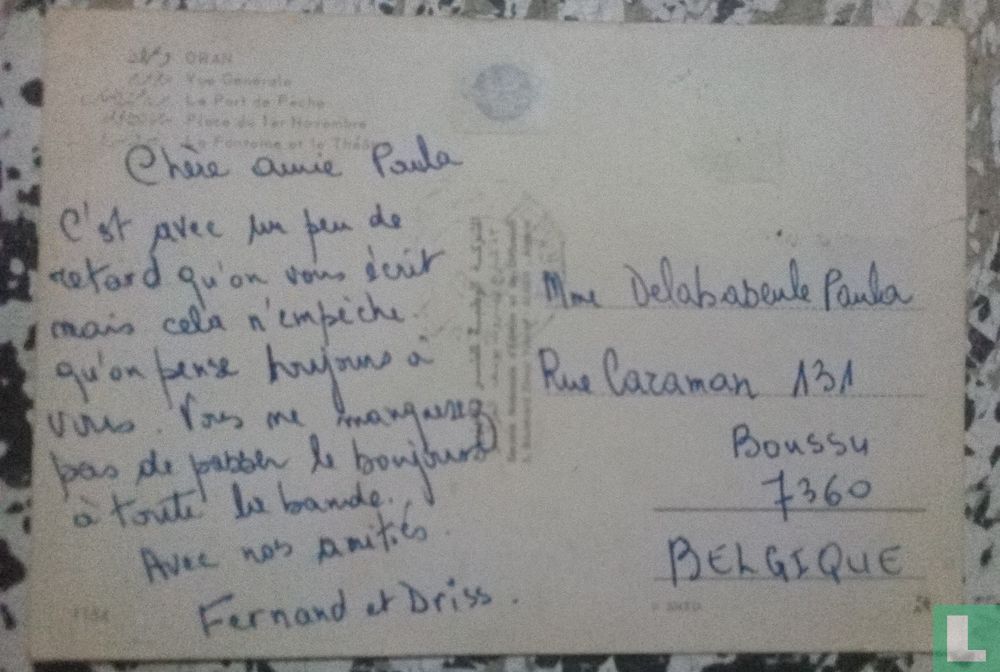 ORAN
Vue Générale
Le Port de Pêche
Place du 1er Novembre
La Fontaine et le
Chère amie Paula
C'est avec un peu de
retard qu'on vous écrit
mais cela n'empèche
qu'on pense toujours à
vous. Vous me manquerez
pas de passer le bonjours
à toute la bande.
Avec nos amitiés.
Fernand et Driss.
Mme Delababeule Paula
Rue Caraman 131
Boussu
7360
BELGIQUE
L